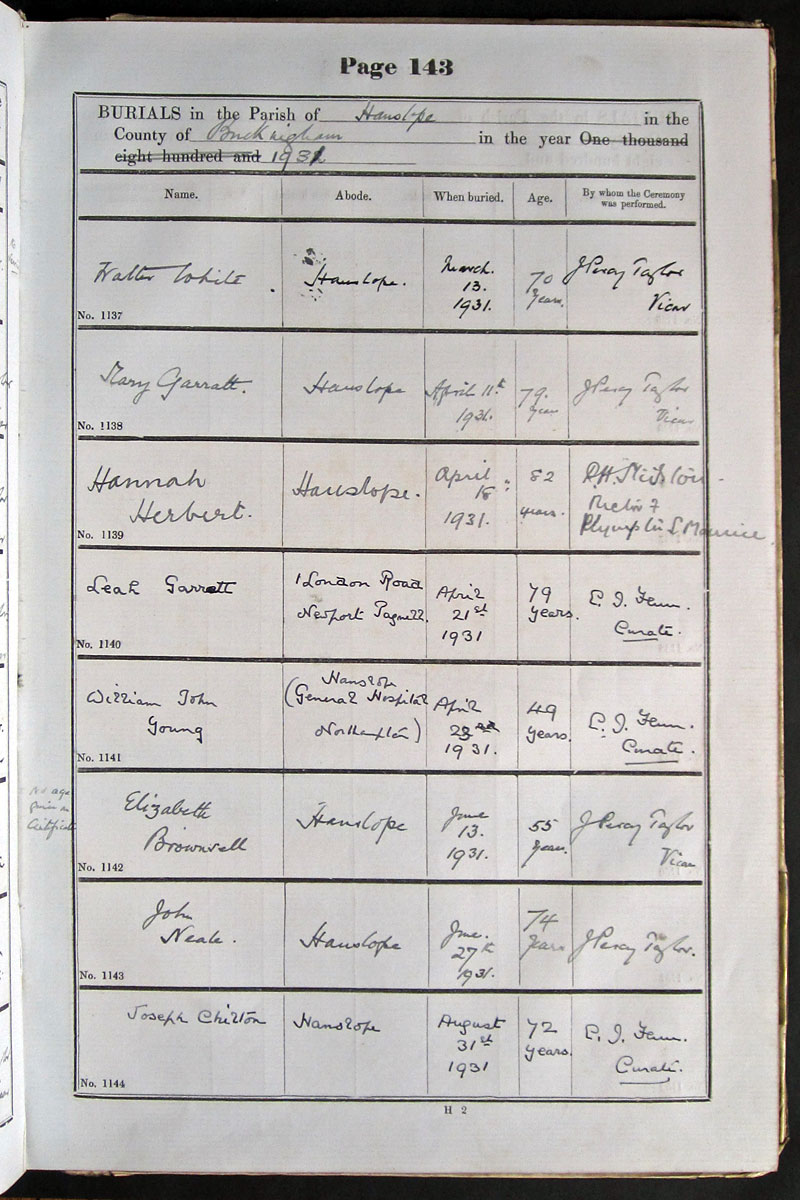 Page 143
BURIALS in the Parish of Hanslope in the
County of Buckingham in the year One thousand
eight hundred and 1931
Name. Abode. When buried. Age. By whom the Ceremony was performed.
Walter White
Hanslope.
March.
13.
1931.
70
Years.
J Percy Taylor
Vicar
No. 1137
Mary Garratt.
Hanslope
April 11th
1931.
79.
Years
J Percy Taylor
Vicar
No. 1138
Hannah
Herbert.
Hanslope.
April
18
1931.
82
years.
Rector of
Plympton S. Maurice.
No. 1139
Leah Garratt
1 London Road
Newport Pagnell.
April
21st
1931
79
years.
E. J. Fenn.
Curate.
No. 1140
William John
Young
Hanslope
(General Hospital
Northampton)
April
1931.
49
years.
E. J. Fenn.
Curate.
No. 1141
No age
given on
Certificate
Elizabeth
Brownsell
Hanslope
June
13.
1931.
55
Years.
J Percy Taylor
Vicar
No. 1142
John
Neale.
Hanslope
June.
27th
1931.
74
Years
J Percy Taylor.
No. 1143
Joseph Chilton
Hanslope
August
31st
1931
72
years.
E. J. Fenn.
Curate.
No. 1144
H 2